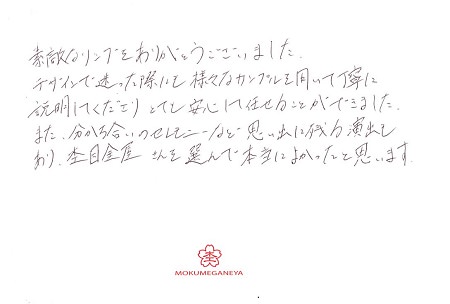 素敵なリングをありがとうございました。
デザインで迷った際にも様々なサンプルを用いて丁寧に
説明してくださりとても安心して任せることができました。
また、分かち合いのセレモニーなど思い出に残る演出も
あり、杢目金屋さんを選んで本当によかったと思います。
杢
MOKUMEGANEYA